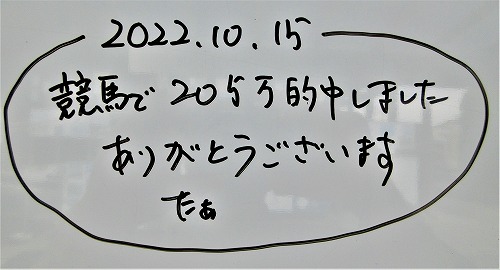 2022.10.15
競馬で205万的中しました
ありがとうございます
たぁ